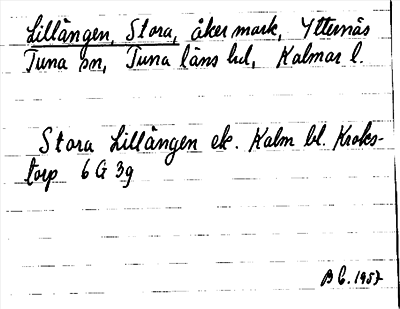 Lillängen, Stora, åkermark, Ytternäs
Tuna sn, Tuna läns hd, Kalmar l.
Stora Lillängen ek. Kalm bl. Kroks-
torp 6 G 3g
B C. 1957